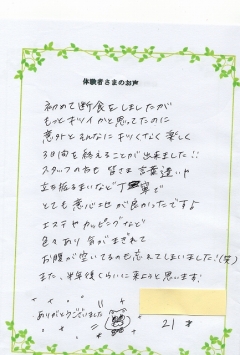 体験者さまのお声
初めて断食をしましたが
もっとキツイかと思ってたのに
意外とそんなにキツくなく楽しく
3日間を終えることが出来ました!!
スタッフの方も皆さま言葉遣いや
立ち振るまいなど丁寧で
とても居心地が良かったですよ
エステやカッピングなど
色々あり気がまぎれて
お腹が空いてるのも忘れてしまいました!(笑)
また、半年後くらいに来ようと思います!
ありがとうございました
21才